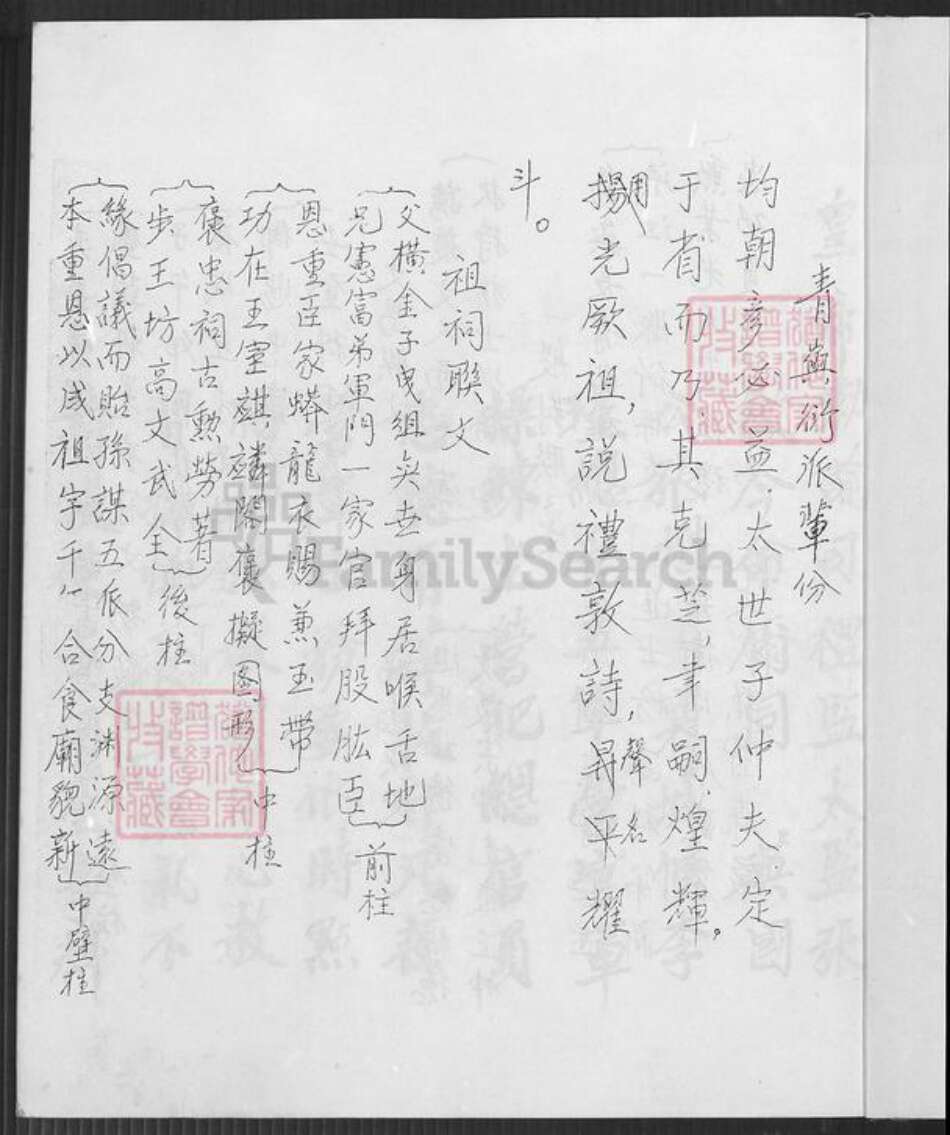 青 衍派輩份
均朝彦 益太世子仲夫定
于省而乃其克芝,聿嗣煌輝。
揚用光厥祖,說禮敦詩,昇聲平名耀
斗。
祖祠聯文
父橫金子曳組 世身居喉舌地
兄憲富弟軍門一家官拜股肱臣
前柱
恩重臣家蟒龍衣賜兼玉帶
功在王室麒麟閣褒擬圖形
中柱
褒忠祠古勲勞著
步王坊高文武全
後柱
緣倡議而貽孫謀五派分支淵源遠
本重恩以感祖字千 合食廟貌新
中壁柱
FamilySearch